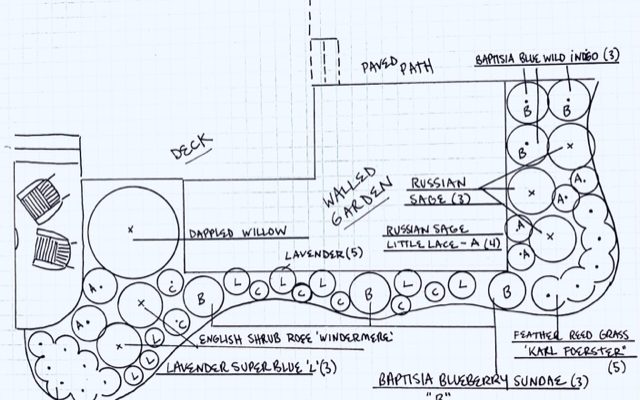 PAVED PATH
BAPTISIA BLUE WILD INDIGO (3)
B
B
DECK
B
A
WALLED GARDEN
RUSSIAN
SAGE (3)
A
DAPPLED WILLOW
RUSSIAN SAGE
LITTLE LACE - A (4)
A
A
LAVENDER (5)
A
C
B
L
C
L
C
L
C
B
L
C
C
L
B
A
C
L
ENGLISH SHRUB ROSE 'WINDERMERE'
FEATHER REED GRASS
'KARL FOERSTER'
(5)
L
LAVENDER SUPER BLUE 'L' (3)
L
BAPTISIA BLUEBERRY SUNDAE (3)
"B"